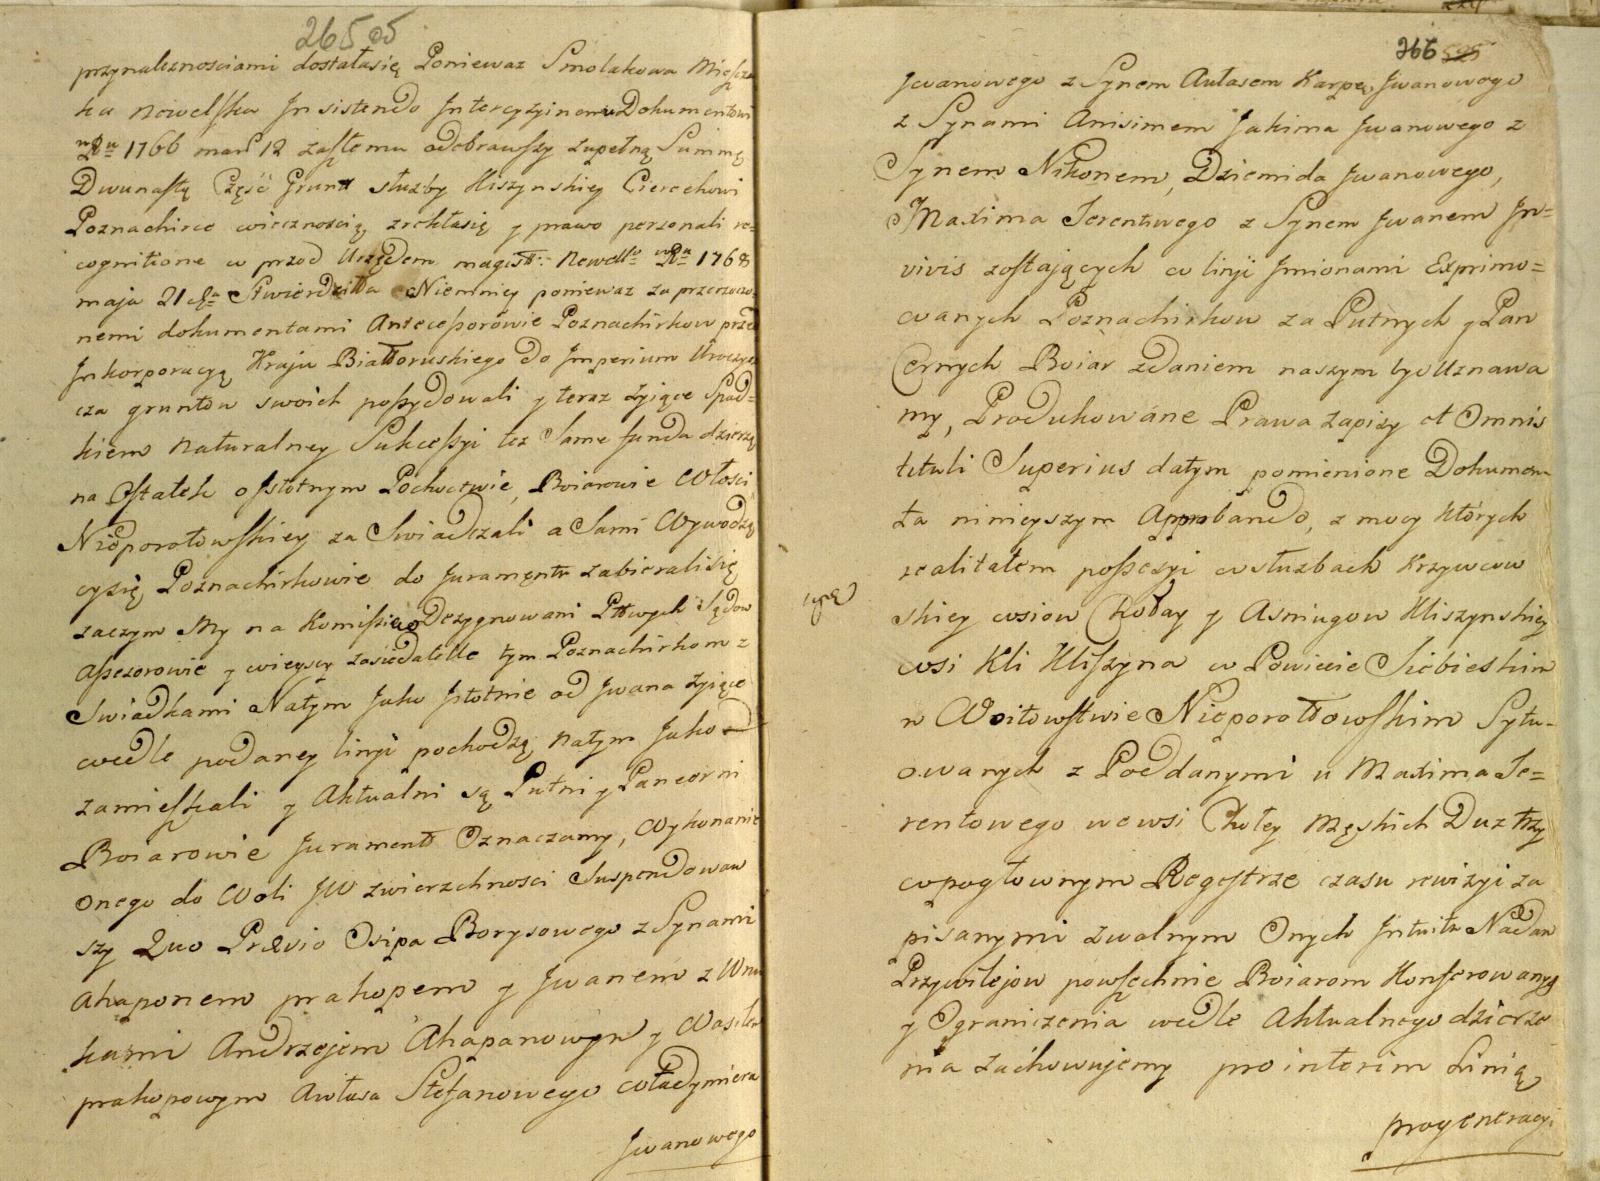 265
przynaleznosciami dostałasię Poniewaz Smolakowa Mieszcz
ka Newelska Insistendo Intercyzyinemu Dokumentowi
1766 mar 12 zaszłemu odebrawszy zupełną Summę
Dwunastą Część Grunt służby Kliszynskiey Cierechowi
Poznachirce wiecznoscią zrekłasię y prawo personali re=
cognitione w przod Urzędem magist: Newells: Ru 1768
maja 21 Stwierdziła Niemniey poniewaz za przerzeczo=
nemi dokumentami Antecessorowie Poznachirkow przed
Inkorporacyą Kraju Białłoruskiego do Imperium
cza gruntow swoich possydowali y teraz zyiące Spad=
kiem naturalney Sukcessyi tez Same funda dzierzą
na Ostatek o Istotnym Pochoctwie, Boiarowie Włosci
Nieporotowskiey za Swiadczali a Sami Wywodzą
cysię Poznachirkowie do Juramentu zabieralisię
zaczym My na Komissią Dezygnowani Sądow
Assesorowie y wieyscy zasiedatelle tym Poznachirkom z
Swiadkami Natym Jako Istotnie od Jwana zyiące
wedle podaney linji pochodzą natym Jako
zamieszkali y Aktualni są Putni y Pancerni
Boiarowie Jurament Oznaczamy, Wykonanie
onego do Woli JW zwierzchnosci Suspendowaw
szy Quo Prævio Osipa Borysowego z Synami
Ahaponem prakopem y Jwanem z Wnu
kami Andrzejem Ahapanowym y Wasilem
prakopowym Awtasa Stefanowego Władymiera
Jwanowego
266
Jwanowego z Synem Awtasem Karpa Jwanowego
z Synami Anisimem Jakima Jwanowego z
Synem Nikonem, Dziemida Jwanowego,
Maxima Terentwego z Synem Jwanem In=
vivis zostających w linji Jmionami Exprimo=
wanych Poznachirkow za Putnych y Pan
Cernych Boiar zdaniem naszym byc Uznawa
my, Produkowane Prawa zapisy et Omnis
tituli Superius datym pomienione Dokumen
ta ninieyszym Approbando, z mocy których
realitatem possesyi w służbach Krzywcow
skiey wsiow Chołay y Asniugow Kliszynskiey
wsi Kli Kliszyna w Powiecie Siebieskim
w Woitowstwie Nieporottowskim Sytu=
owanych z Poddanymi u Maxima Te=
rentowego wewsi Chołey Męskich Duz trzy
wpogłownym Regestrze czasu rewizyi za
pisanymi zwolnym Onych Intuitu Nadan
Przywilejow powszechnie Boiarom Konferowanych
y Ograniczenia wedle Aktualnego dzierze
nia zachowujemy pro interim Linią
progeneracyi